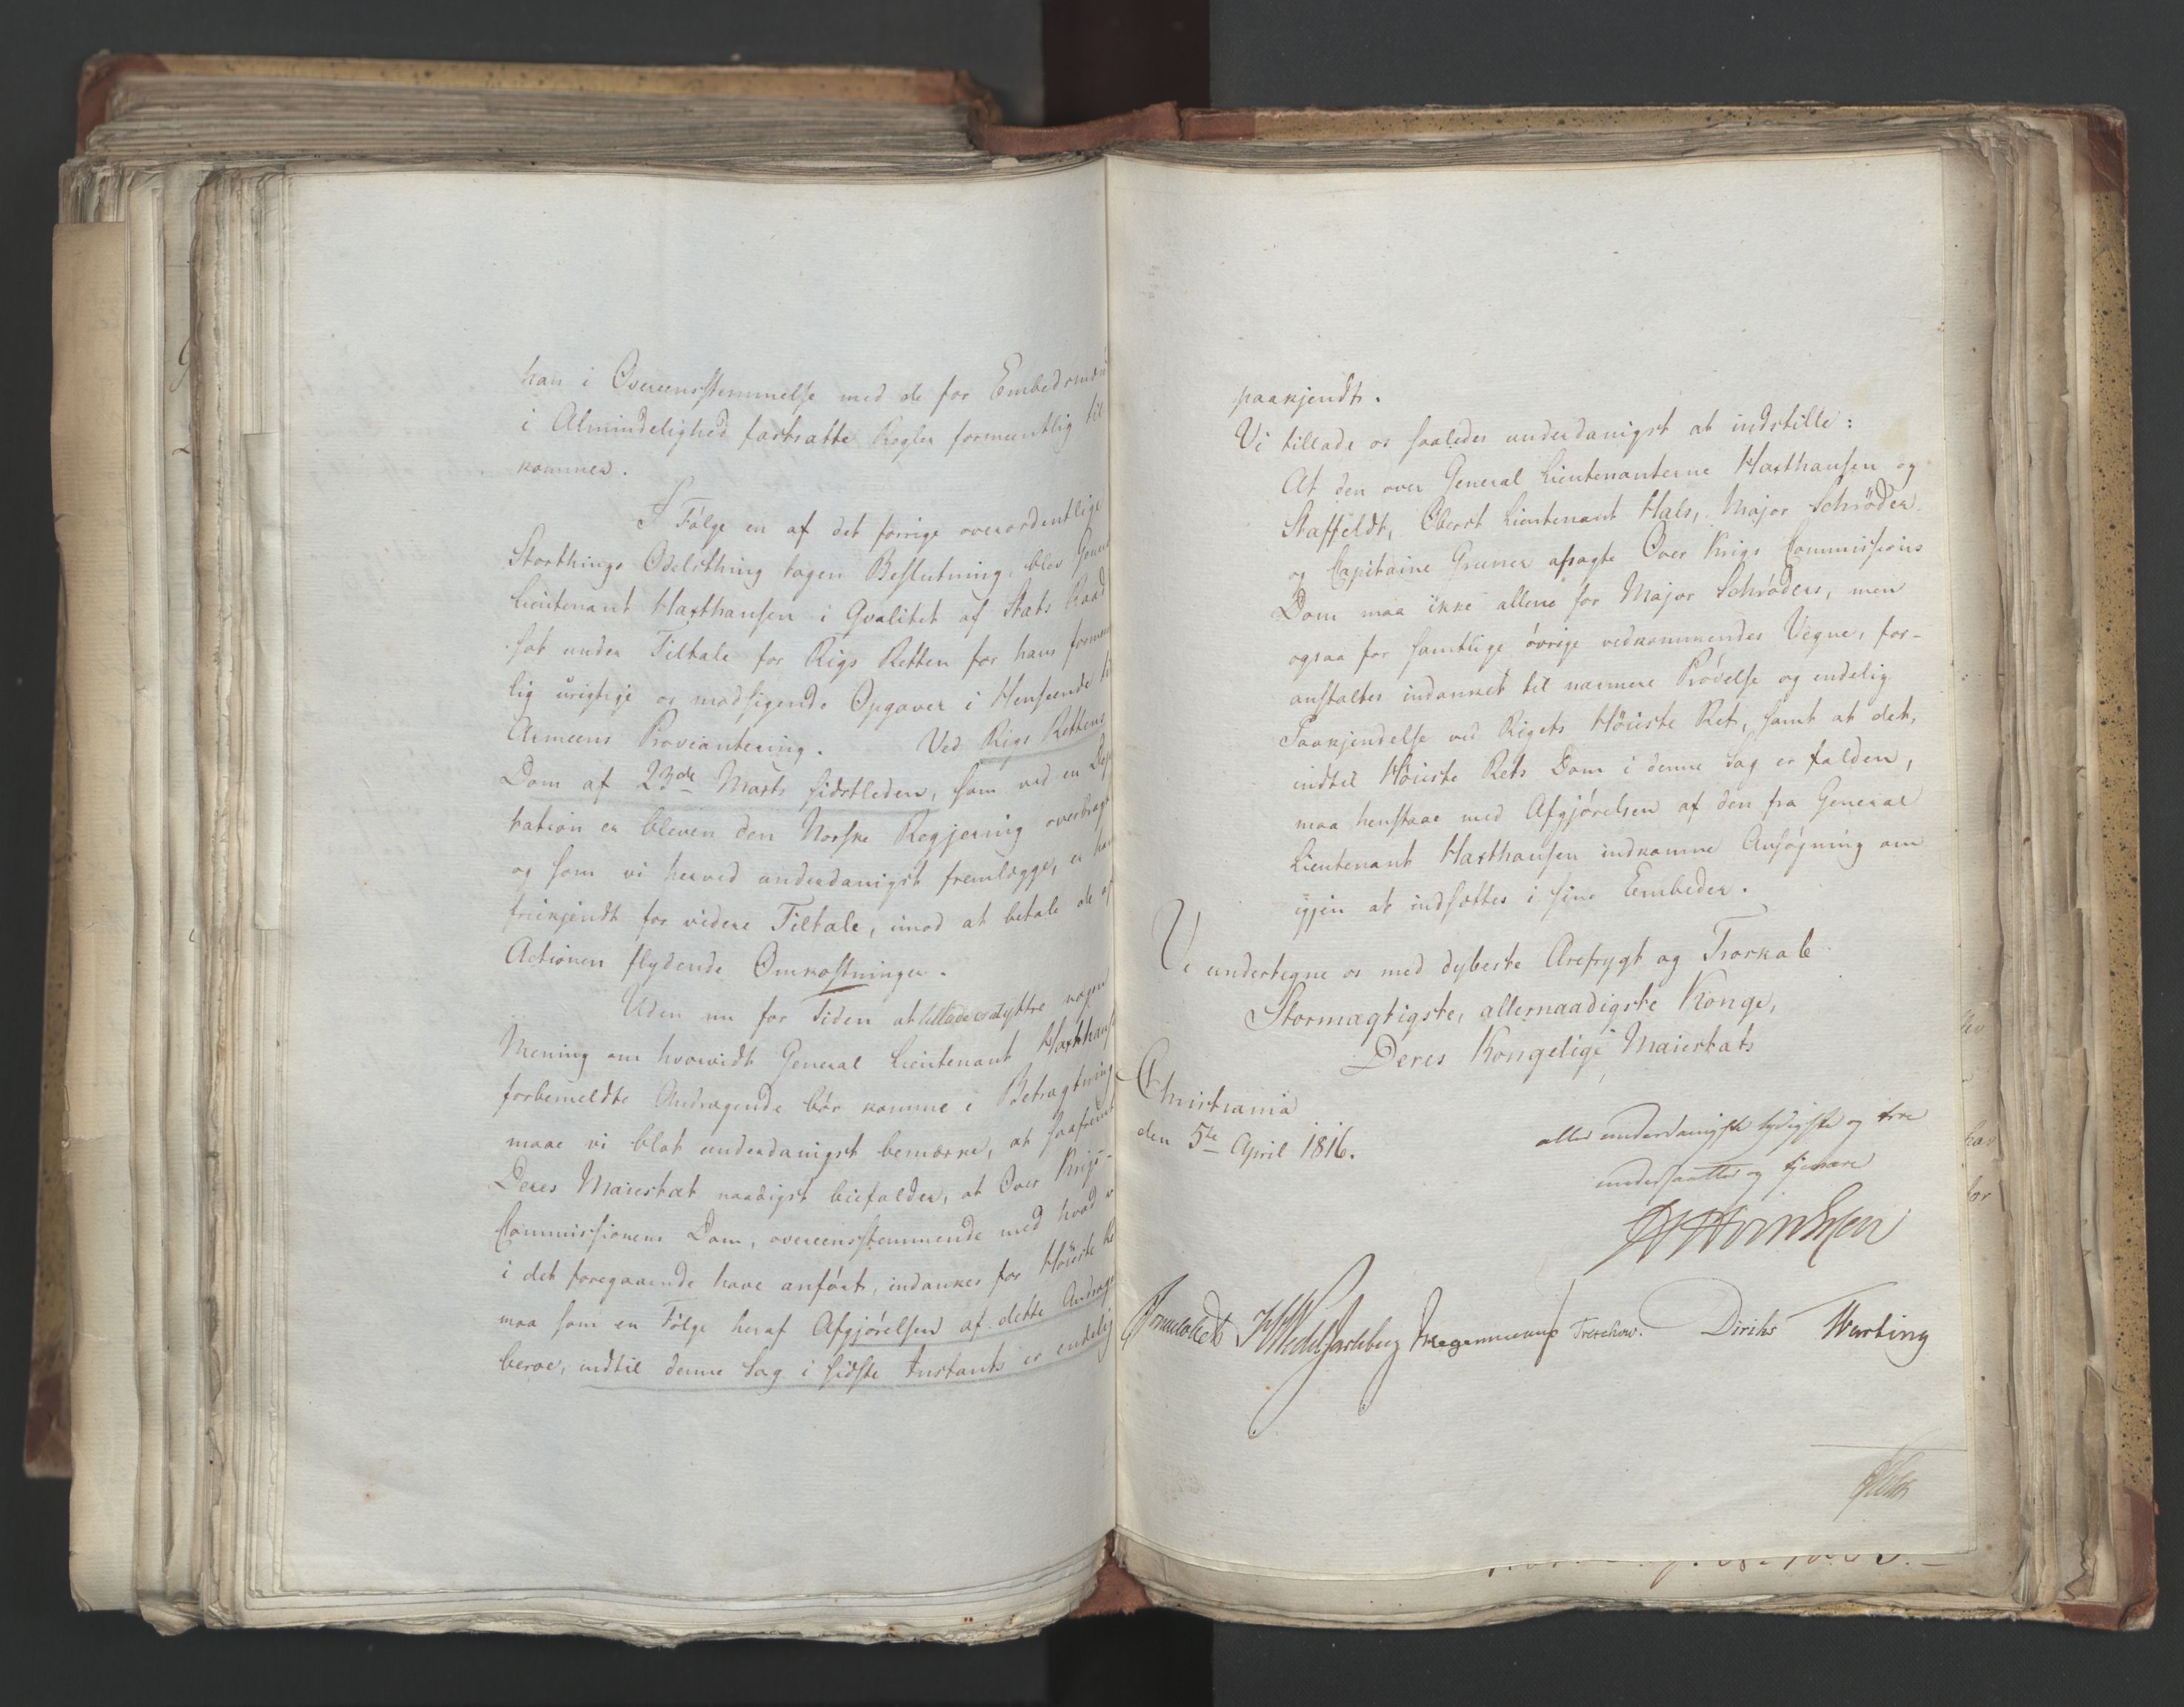 han i Overeensstemmelse med de for Embedsmænd
i Almindelighed fastsatte Regler formeentlig til
kommer.
I Følge en af det forrige overordentlige
Storthings Odelsthing tagen Beslutning, blev General
Lieutenant Haxthausen i Qvalitet af Stats Raad
sat under Tiltale for Rigs Retten for hans formeent
lig urigtige og modsigende Opgaver i Henseende til
Armeens Proviantering. Ved Rigs Rettens
Dom af 23de Marts sidstleden, som ved en Depu
tation er bleven den Norske Regjering overbragt
og som vi herved underdanigst fremlægge, er han
friekjendt for videre Tiltale, imod at betale de af
Actionen flydende Omkostninger.
Uden nu for Tiden at tillade os at yttre nogen
Mening om hvorvidt General Lieutenant Haxthausens
forbemeldte Andragende bør komme i Betragtning
maae vi blot underdanigst bemærke, at saafremt
Deres Maiestæt naadigst biefalder, at Over Krigs-
Commissionens Dom, overeensstemmende med hvad vi
i det foregaaende have anført, indankes for Høieste Ret
maa som en Følge heraf Afgjørelsen af dette Andrage
beroe, indtil denne Sag i sidste Instants er endelig
paakjendt.
Vi tillade os saaledes underdanigst at indstille:
At den over General Lieutenanterne Haxthausen og
Staffeldt, Oberst Lieutenant Hals, Major Schrøder
og Capitaine Gruner afsagte Over Krigs Commissions
Dom maa ikke allene for Major Schrøders, men
ogsaa for samtlige øvrige vedkommendes Vegne, for-
anstaltes indanket til nærmere Prøvelse og endelig
Paakjendelse ved Rigets Høieste Ret, samt at det,
indtil Høieste Rets Dom i denne Sag er falden,
maa henstaae med Afgjørelsen af den fra General
Lieutenant Haxthausen indkomne Ansøgning om
igjen at indsættes i sine Embeder.
Vi undertegne os med dybeste Ærefrygt og Troskab
Stormægtigste, allernaadigste Konge,
Deres Kongelige Maiestæts
Christiania
den 5te April 1816.
aller underdanigste lydigste og troe
undersaatter og tjenere
Sommerhielm HWedelJarlsberg Krogh Treschow. Diriks Motzfeldt